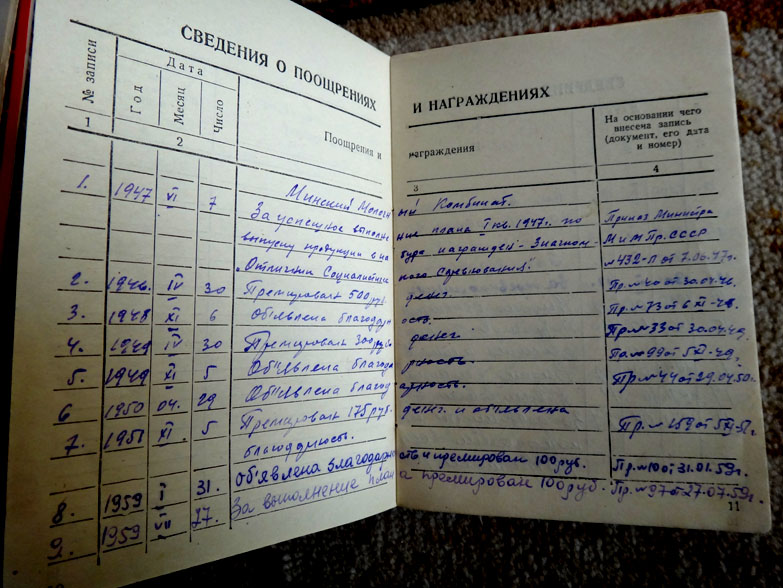 СВЕДЕНИЯ О ПООЩРЕНИЯХ И НАГРАЖДЕНИЯХ
№ записи Дата Поощрения и награждения На основании чего внесена запись (документ, его дата и номер)
Год Месяц Число
1 2 3 4
1. 1947 VI 7 Минский Молочный Комбинат.
За успешное выполнение плана I кв. 1947г. по Приказ Министра
выпуску продукции награжден Значком МиМПр.СССР
"Отличник Социалистического Соревнования" №432-П от 7.06.47г.
2. 1946. IV 30 Премирован 500 руб. денег Пр.№40 от 30.04.46.
3. 1948 XI 6 Объявлена благодарность. Пр.№73 от 6 XI-48.
4. 1949 IV 30 Премирован 300 руб. денег Пр.№33 от 30.04.49.
5. 1949 XI 5 Объявлена благодарность. №99 от 5 XI-49.
6 1950 04. 29 Объявлена благодарность. Пр.№44 от 29.04.50г.
7. 1951 XI. 5 Премирован 175 руб. денег. и объявлена
благодарность. Пр.№159 от
8. 1959 I 31. Объявлена благодарность и премирован 100 руб. Пр.№10 от 31.01.59г.
9. 1959 VII 27. За выполнение плана премирован 100 руб. Пр.№97 от 27.07.59г.
11